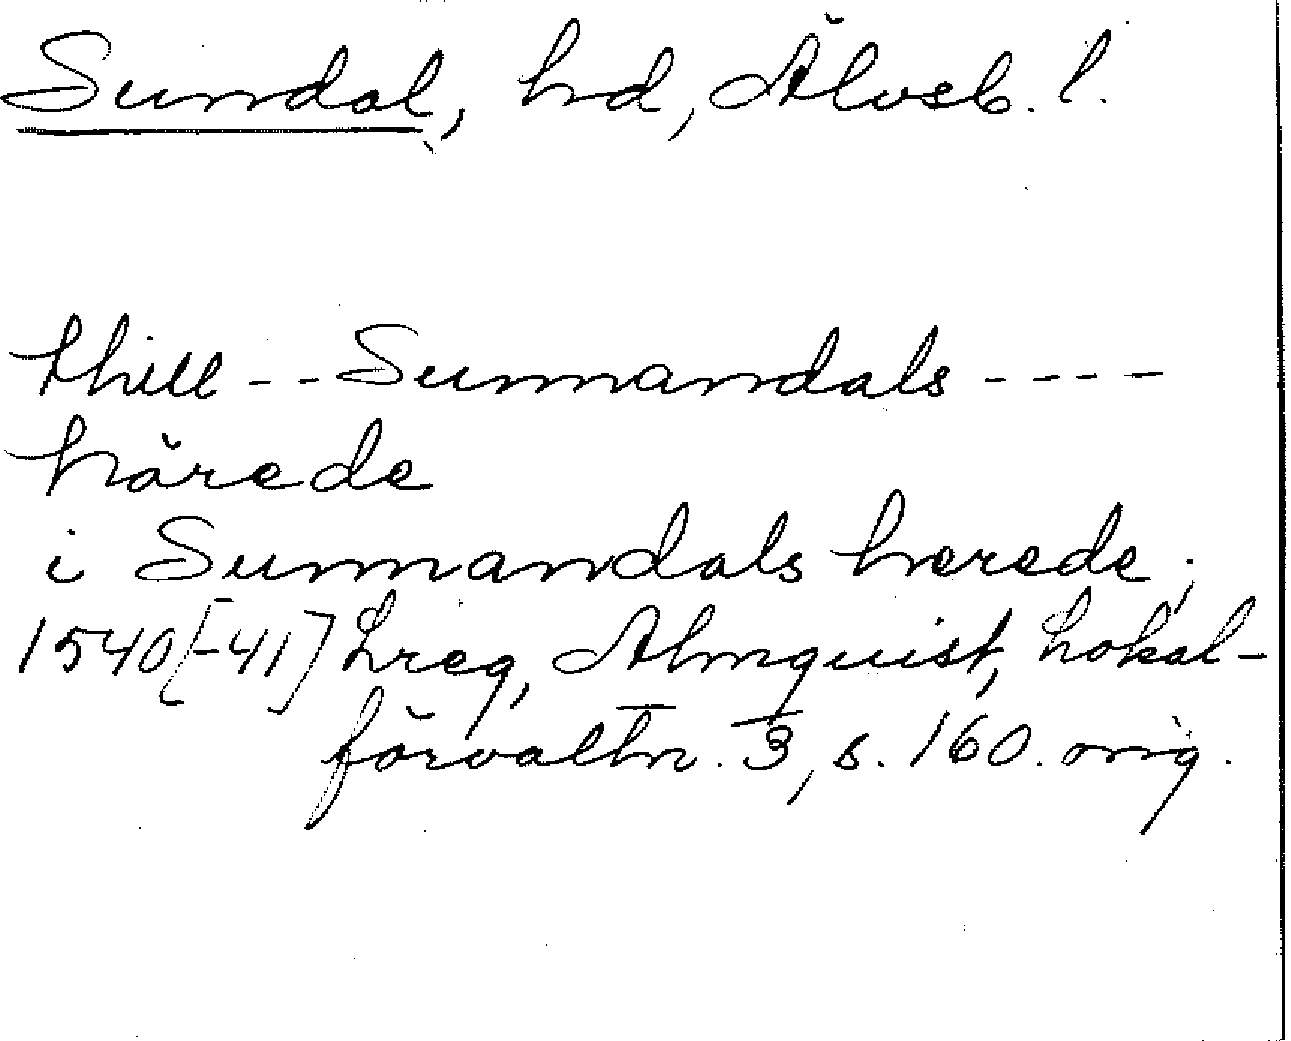 Sundal, hd, Älvsb. l.
thill -- Sunnandals ----
härede
i Sunnandals herede;
1540[-41] Lreg, Almquist, Lokal-
förvaltn. 3, s. 160. orig.